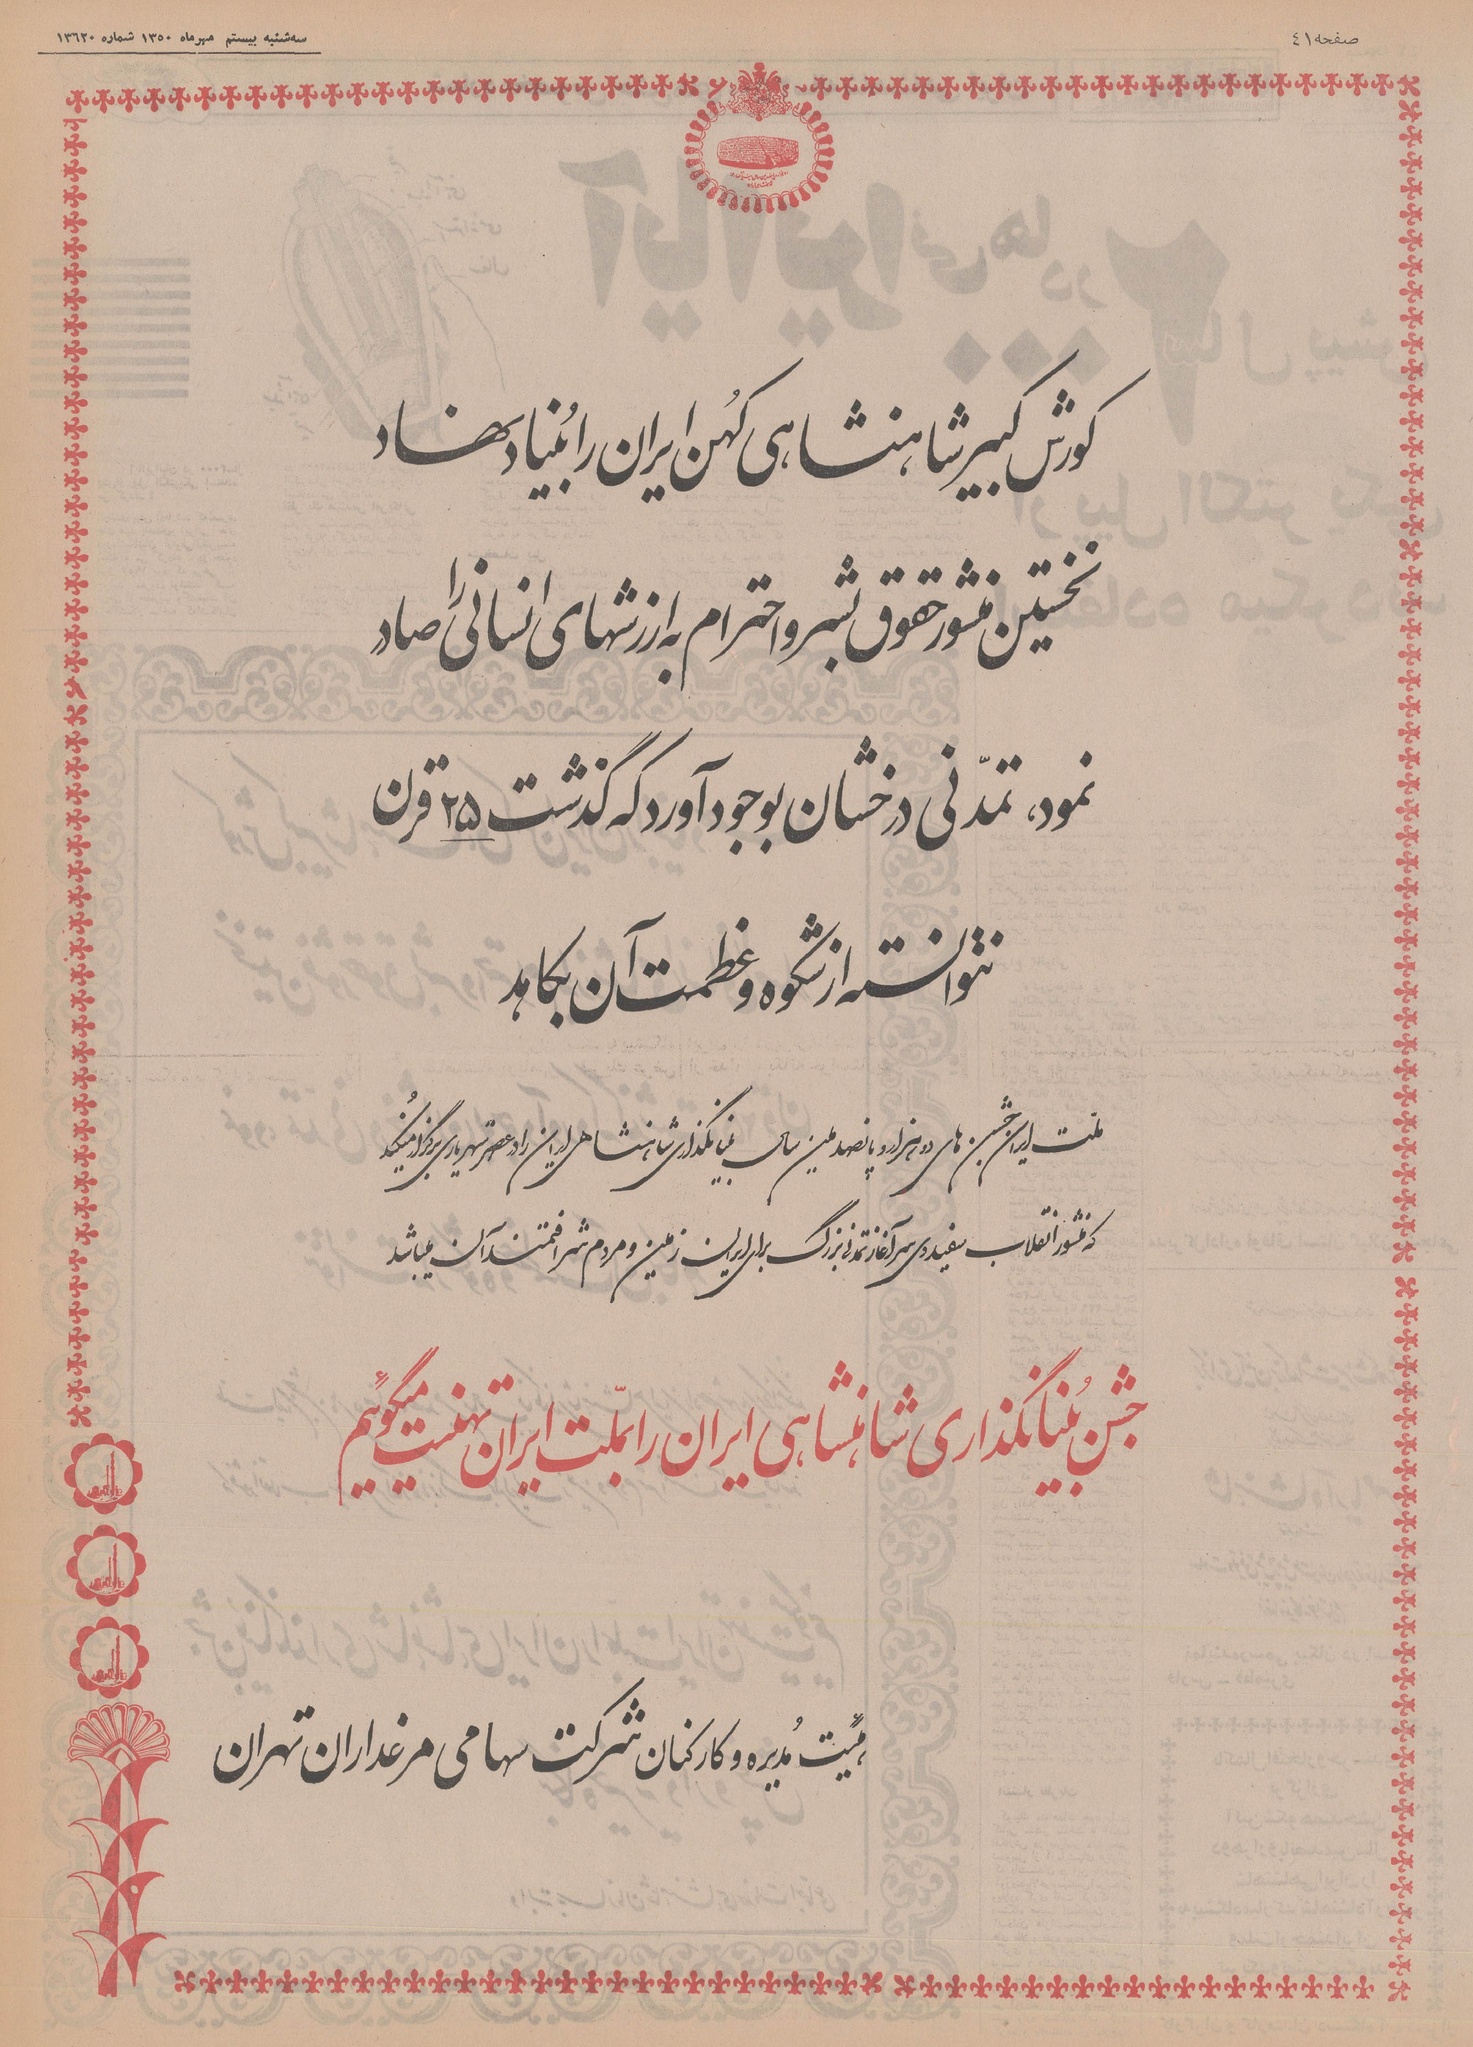 صفحه ٤١
سه‌شنبه بیستم مهرماه ١٣٥٠ شماره ١٣٦٢٠
کورش کبیر شاهنشاهی کهُن ایران را بُنیاد نهاد
نخستین منشور حقوق بشر و احترام به ارزشهای انسانی را صادر
نمود، تمدّنی درخشان بوجود آورد که گذشت ۲۵ قرن
نتوانسته از شکوه و عظمت آن بکاهد
ملت ایران جشن های دو هزار و پانصدمین سال بنیانگذاری شاهنشاهی ایران را در عصر شهریاری برگزار میکُند
که منشور انقلاب سفید وی سرآغاز تمدنی بزرگ برای ایران زمین و مردم شرافتمند آن میباشد
جشن بُنیانگذاری شاهنشاهی ایران را بملّت ایران تهنیت میگوئیم
هیئت مُدیره و کارکنان شرکت سهامی مرغداران تهران